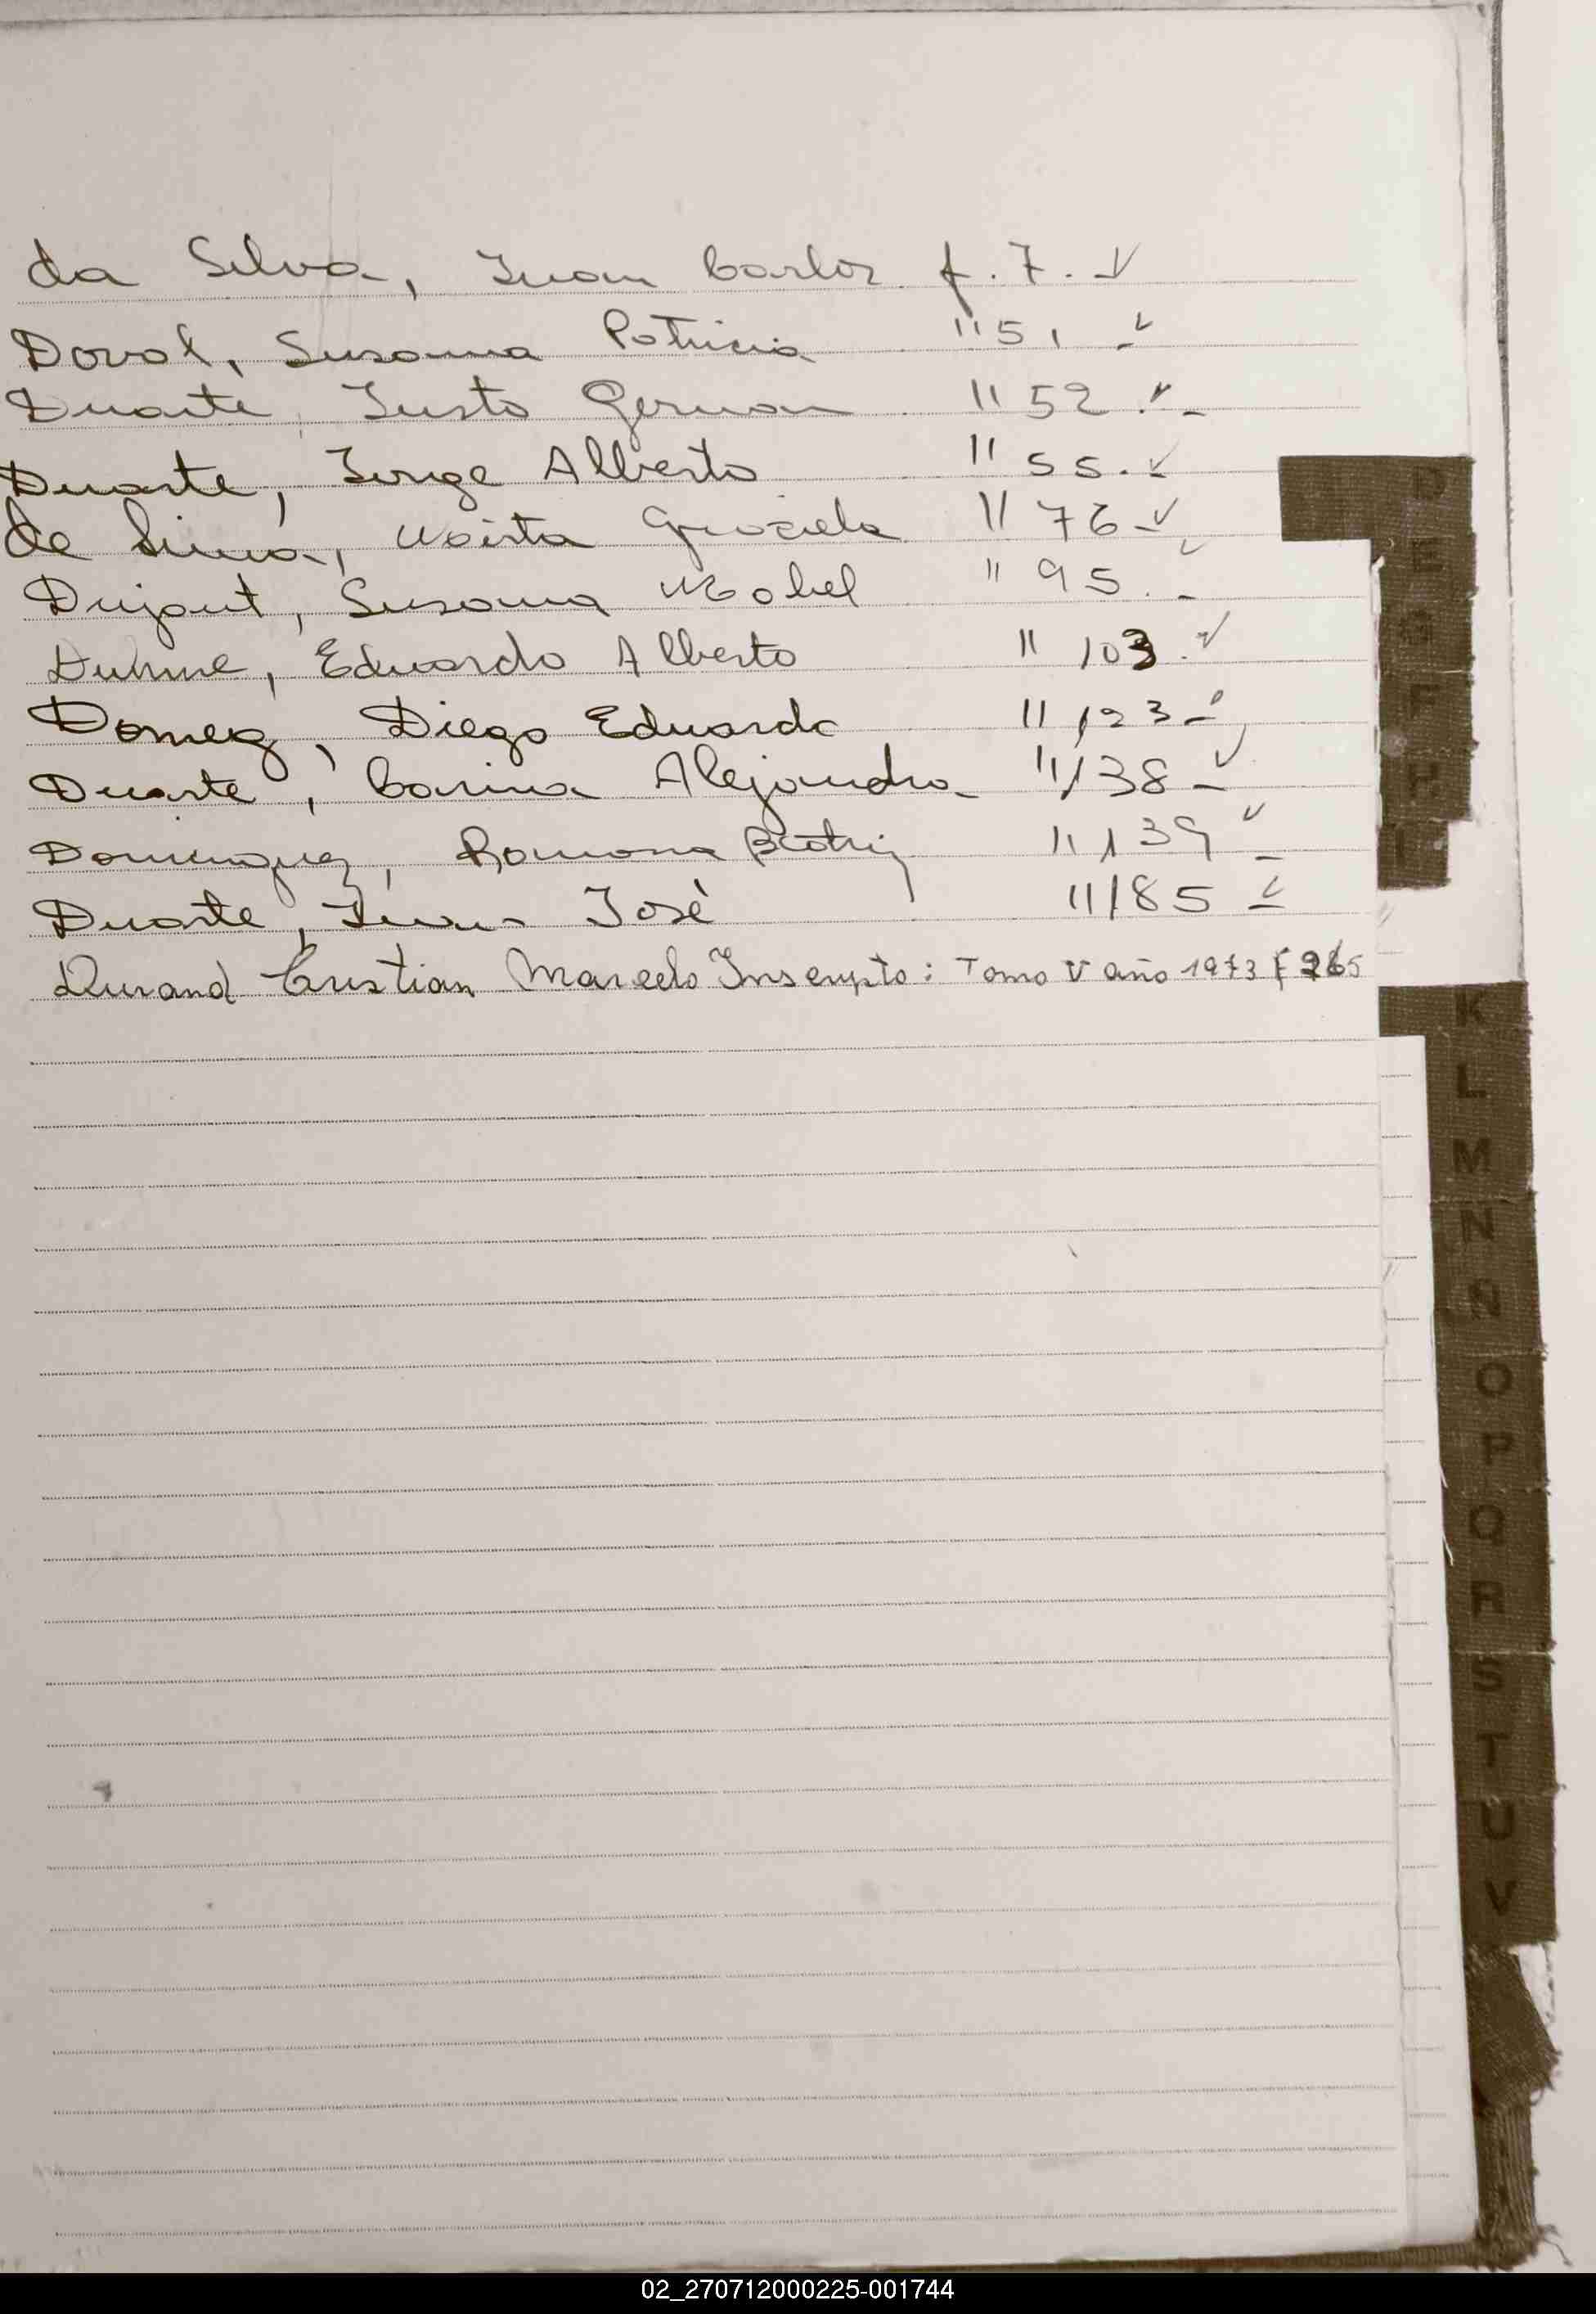 da Silva, Juan Carlos f. 7. ✓
Doval, Susana Patricia " 51 ✓
Duarte, Justo German " 52 . ✓ -
Duarte, Jorge Alberto " 55 . ✓
de Lima, Mirta Graciela " 76 - ✓
Susana Mabel " 95 . ✓ -
Eduardo Alberto " 103 . ✓
Domez, Diego Eduardo " 123 - ✓
Duarte, Carina Alejandra - " 138 - ✓
Dominguez, Ramona Beatriz " 139 ✓ -
Duarte, Juan José " 185 ✓ -
Durand Cristian Marcelo Inscripto: Tomo V año 1973 F 265
D
E
G
F
H
I
K
L
M
N
Ñ
O
P
Q
R
S
T
U
V
02_270712000225-001744